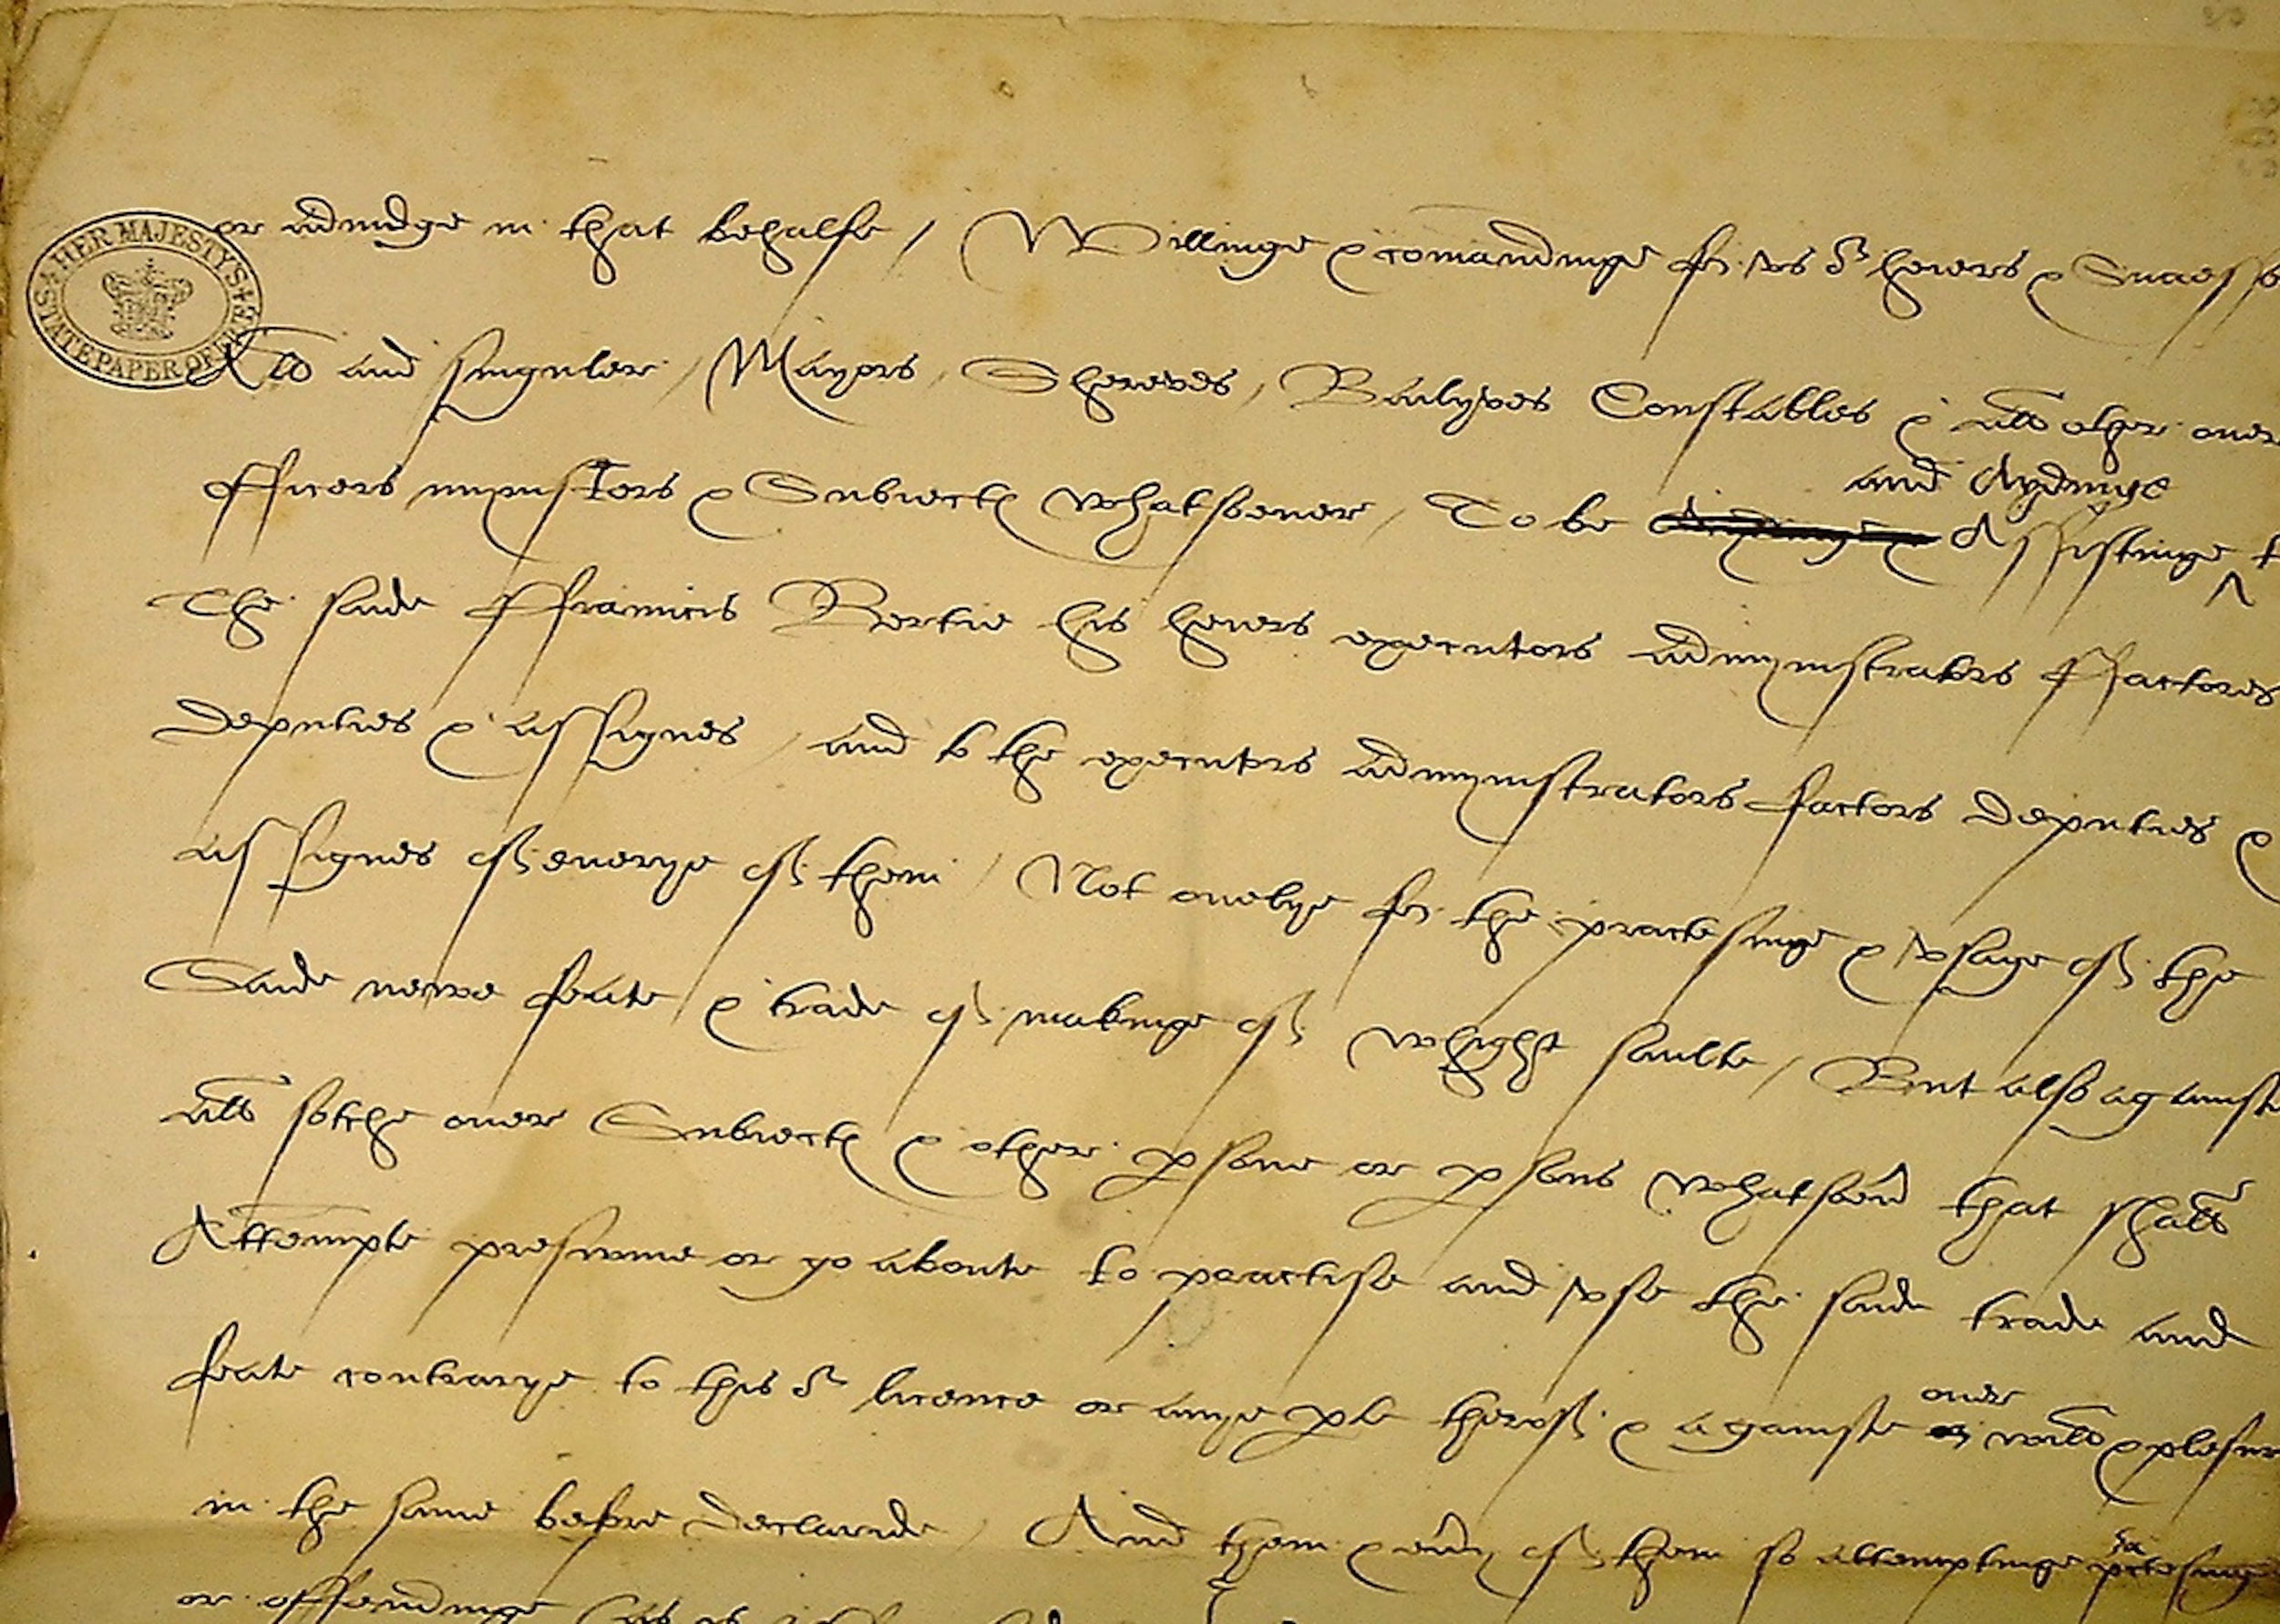 HER MAJESTY'S STATE PAPER OFFICE
or adiudge in that behalfe / Willinge & comandinge for vs or heiers & Successo
All and singuler / Mayors / Shereves / Bailyves Constables & all other ouer
officers mynisters & Subiectes whatsoeuer / To be Assistinge
and Aydinge
The saide Ffrauncis Bertie his heiers executors admynistrators Ffactores
deputies & assignes / and to the executors admynistrators factors deputies &
assignes of euerye of them / Not onelye for the practesinge & vsage of the
Saide newe feate & trade of makinge of whight saulte / But also againste
all sotche ouer Subiectes & other psone or psons whatsoeu that shall
Attempte presume or go aboute to practise and vse the saide trade and
feate contrarye to this or licence or anye pte therof & againste
ouer
will & plesur
in the same before declaride / And them & euy of them so attemptinge
or offendinge